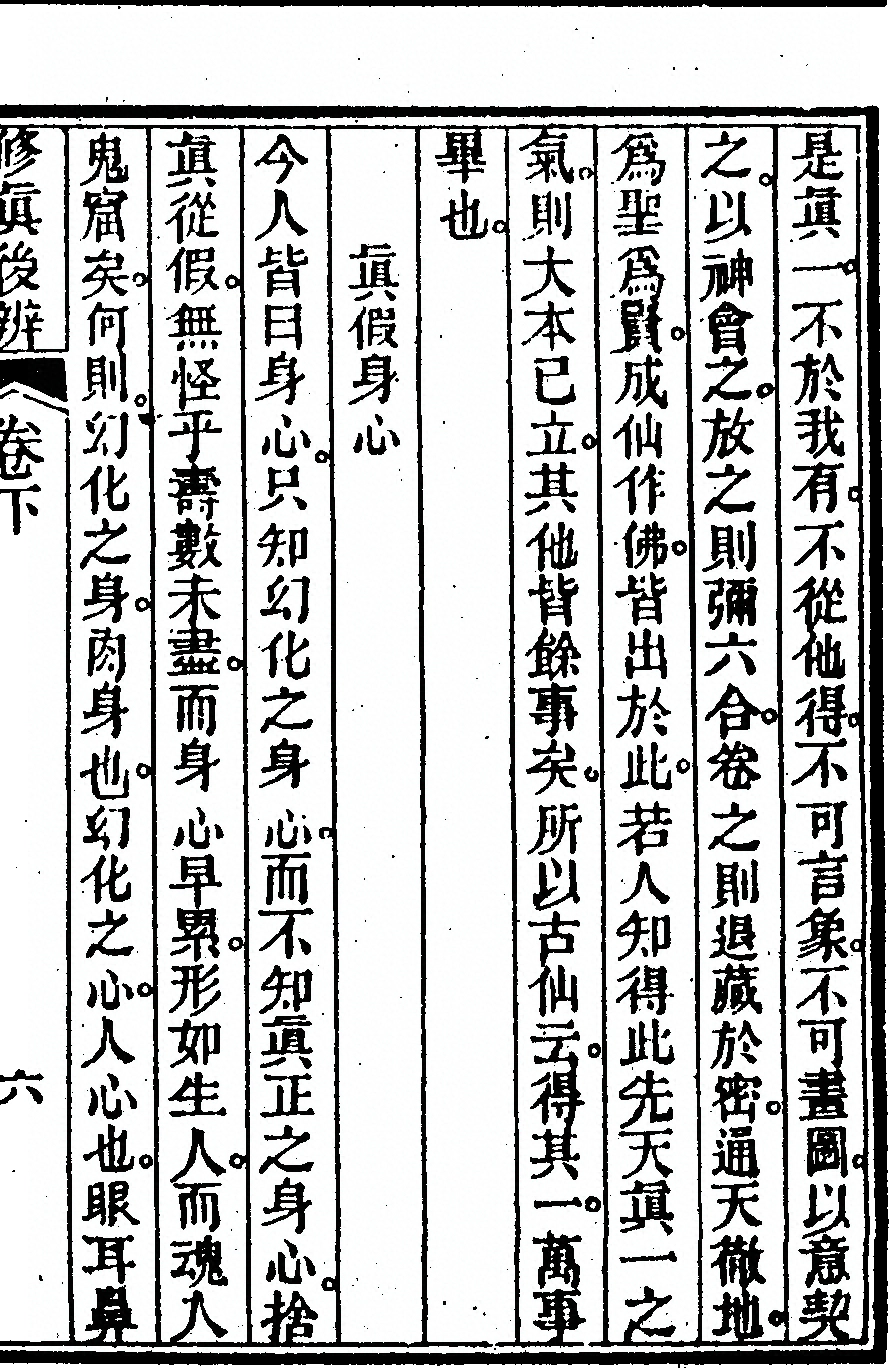 是眞一。不於我有。不從他得。不可言象。不可畫圖。以意契
之。以神會之。放之則彌六合。卷之則退藏於密。通天徹地。
爲聖爲賢。成仙作佛。皆出於此。若人知得此先天眞一之
氣。則大本已立。其他皆餘事矣。所以古仙云。得其一。萬事
畢也。
眞假身心
今人皆曰身心。只知幻化之身心。而不知眞正之身心。捨
眞從假。無怪乎壽數未盡。而身心早累。形如生人。而魂入
鬼窟矣。何則。幻化之身。肉身也。幻化之心。人心也。眼耳鼻
修眞後辨 卷下 六